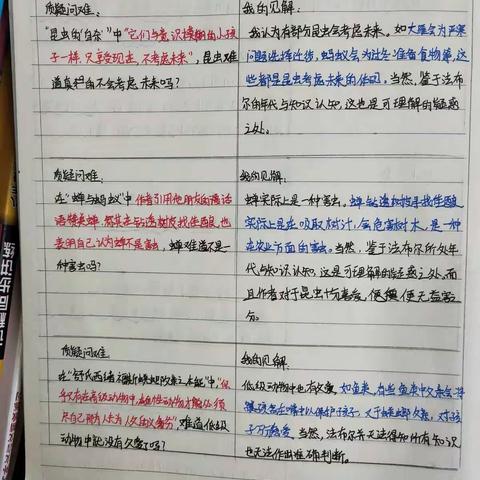 质疑问难:
"昆虫的自杀"中"它们与意识模糊的小孩子
一样,只享受现在,不考虑未来",昆虫难
道真的不会考虑未来吗?
我的见解:
我认为有部分昆虫会考虑未来。如大雁会为严寒
问题选择迁徙,蚂蚁会为过冬准备食物等,这
些都是昆虫考虑未来的体现。当然,鉴于法布
尔的年代与知识认知,这也是可理解的疑惑
之处。
质疑问难:
在"蝉与蚂蚁"中作者引用他朋友的寓话
语赞美蝉,
表明自己认为蝉不是害虫,蝉难道不是一
种害虫吗?
我的见解:
蝉实际上是一种害虫。蝉钻透树皮寻找佳酿
实际上是在吸取树汁,会危害树木,是一种
在农业方面的害虫。当然,鉴于法布尔所处年
代与知识认知,这是可理解的疑惑之处。而
且作者对于昆虫十分喜爱,
质疑问难:
仅存在高级动物中,
难道低级
动物中就没有父爱了吗?
我的见解:
低级动物中也有父爱。如鱼类,有些鱼类中父亲会将
对孩
子万分疼爱。当然,法布尔并无法得知所有知识
也无法作出准确判断。